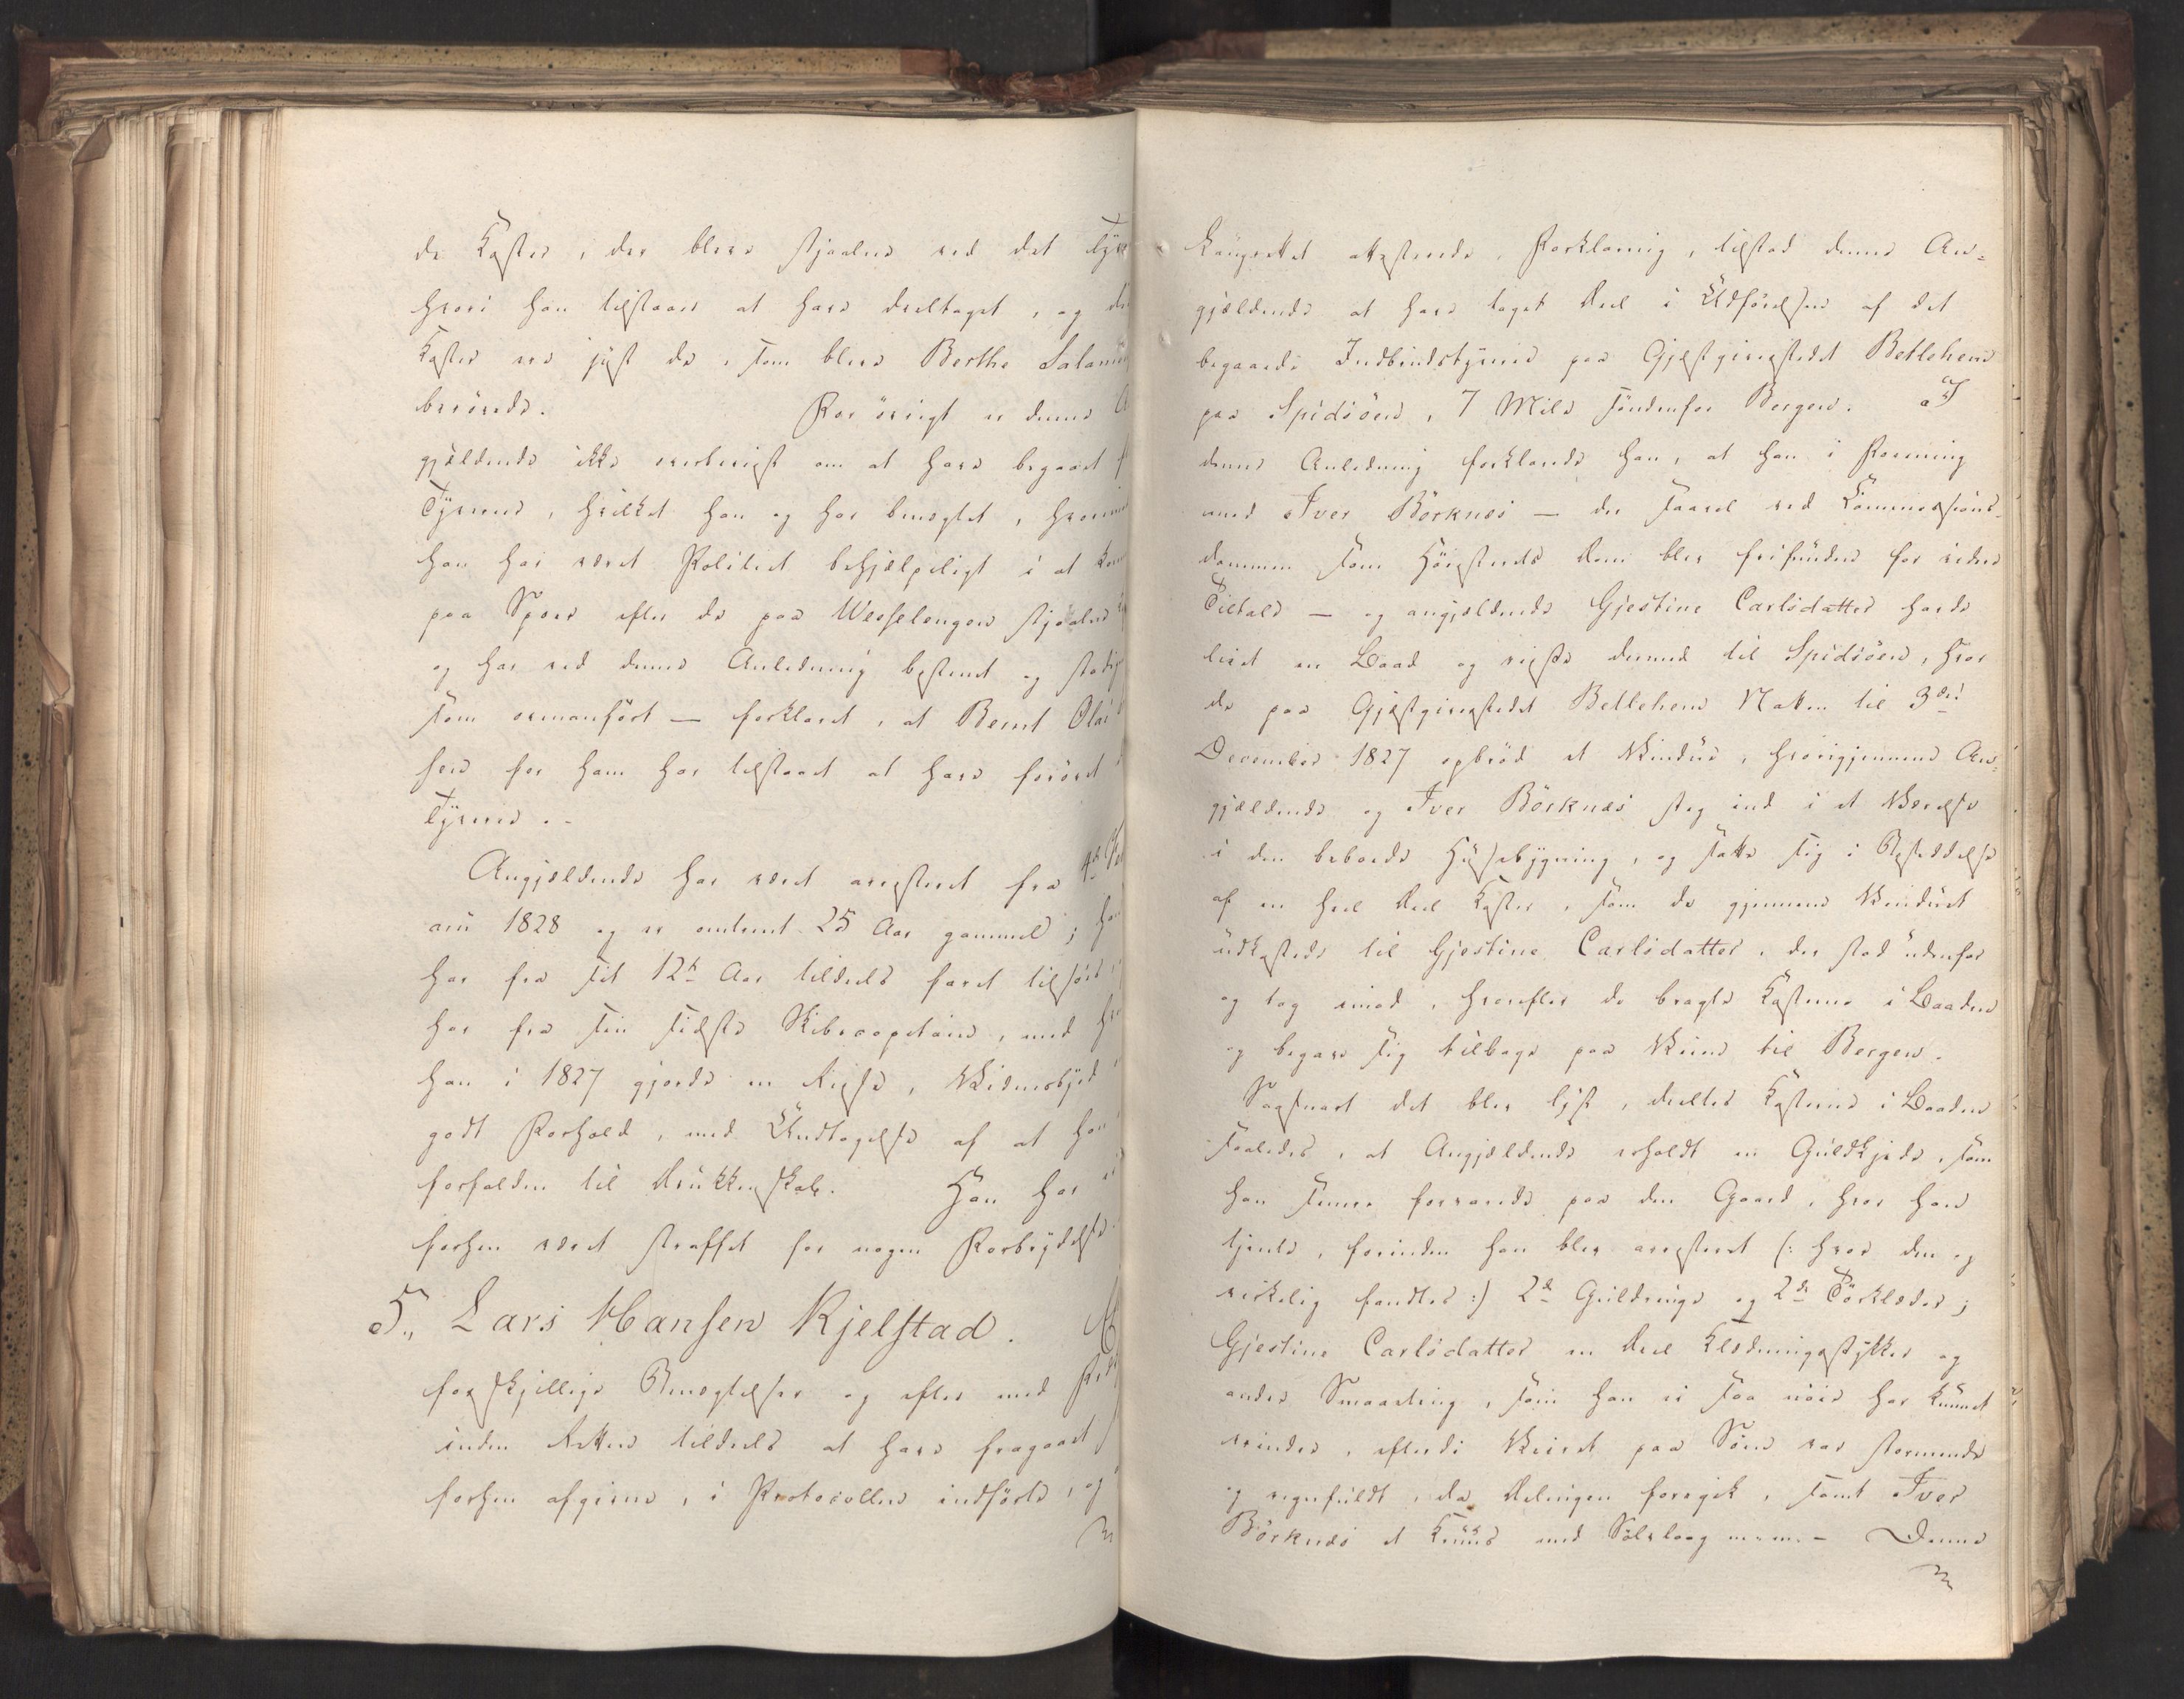 de Koster, der bleve stjaalne ved det Tyv
hvori han tilstaaer at have deeltaget, og
Koster var just de, som bleve Berthe Salam
berøvede. For øvrigt er denne
gjældende ikke overbeviist om at have begaaet
Tyverie, hvilket han og har benægtet,
han har været Politiet behjælpeligt i at kom
paa Spore efter de paa Wesselengen stjaalne
og har ved denne Anledning bestemt og
som ovenanført — forklaret, at Bernt Olai
sen for ham har tilstaaet at have forøvet
Tyverie.
Angjældende har været arresteret fra 4de
arii 1828 og er omtrent 25 Aar gammel;
har fra sit 12te Aar tildeels faret tilsøes,
har fra sin sidste Skibscapitain, med
han i 1827 gjorde en Reise, Vidnesbyrd
godt Forhold, med Undtagelse af at han
forfalden til Drukkenskab. Han har
forhen været straffet for nogen Forbrydelse.
5., Lars Hansen Kjelstad.
forskjellige Benægtelser og efter med
inden Retten tildeels at have fragaaet
forhen afgivne, i Protocollen indførte, og
Langrettet attesterede, Forklaring, tilstod denne An-
gjældende at have taget Deel i Udførelsen af det
begaaede Indbrudstyverie paa Gjæstgiverstedet Betlehem
paa Spidsøen, 7 Mile søndenfor Bergen. I
denne Anledning forklarede han, at han i Forening
med Iver Børknes — der saavel ved Commissions-
dommen som Høiesterets Dom blev frifunden for videre
Tiltale — og angjældende Gjestine Carlsdatter havde
leiet en Baad og reiste dermed til Spidsøen, hvor
de paa Gjæstgiverstedet Betlehem Natten til 3die
December 1827 opbrød et Vindue, hvorigjennem An-
gjældende og Iver Børknes steg ind i et Værelse
i den beboede Huusebygning, og satte sig i Besiddelse
af en heel Deel Koster, som de gjennem Vinduet
udkastede til Gjestine Carlsdatter, der stod udenfor
og tog imod, hvorefter de bragte Kosterne i Baaden
og begave sig tilbage paa Veien til Bergen.
Saasnart det blev lyst, deeltes Kosterne i Baaden
saaledes, at Angjældende erholdt en Guldkjede, som
han siden forvarede paa den Gaard, hvor han
tjente, forinden han blev arresteret (: hvor den og
virkelig fandtes :) 2de Guldringe og 2de Tørklæder;
Gjestine Carlsdatter en Deel Klædningsstykker og
andre Smaating, som han ei saa nøie har kunnet
erindre, efterdi Veiret paa Søen var stormende
og regnfuldt, da Delingen foregik, samt Iver
Børknes et Kruus med Sølvlaag m.m. — Denne